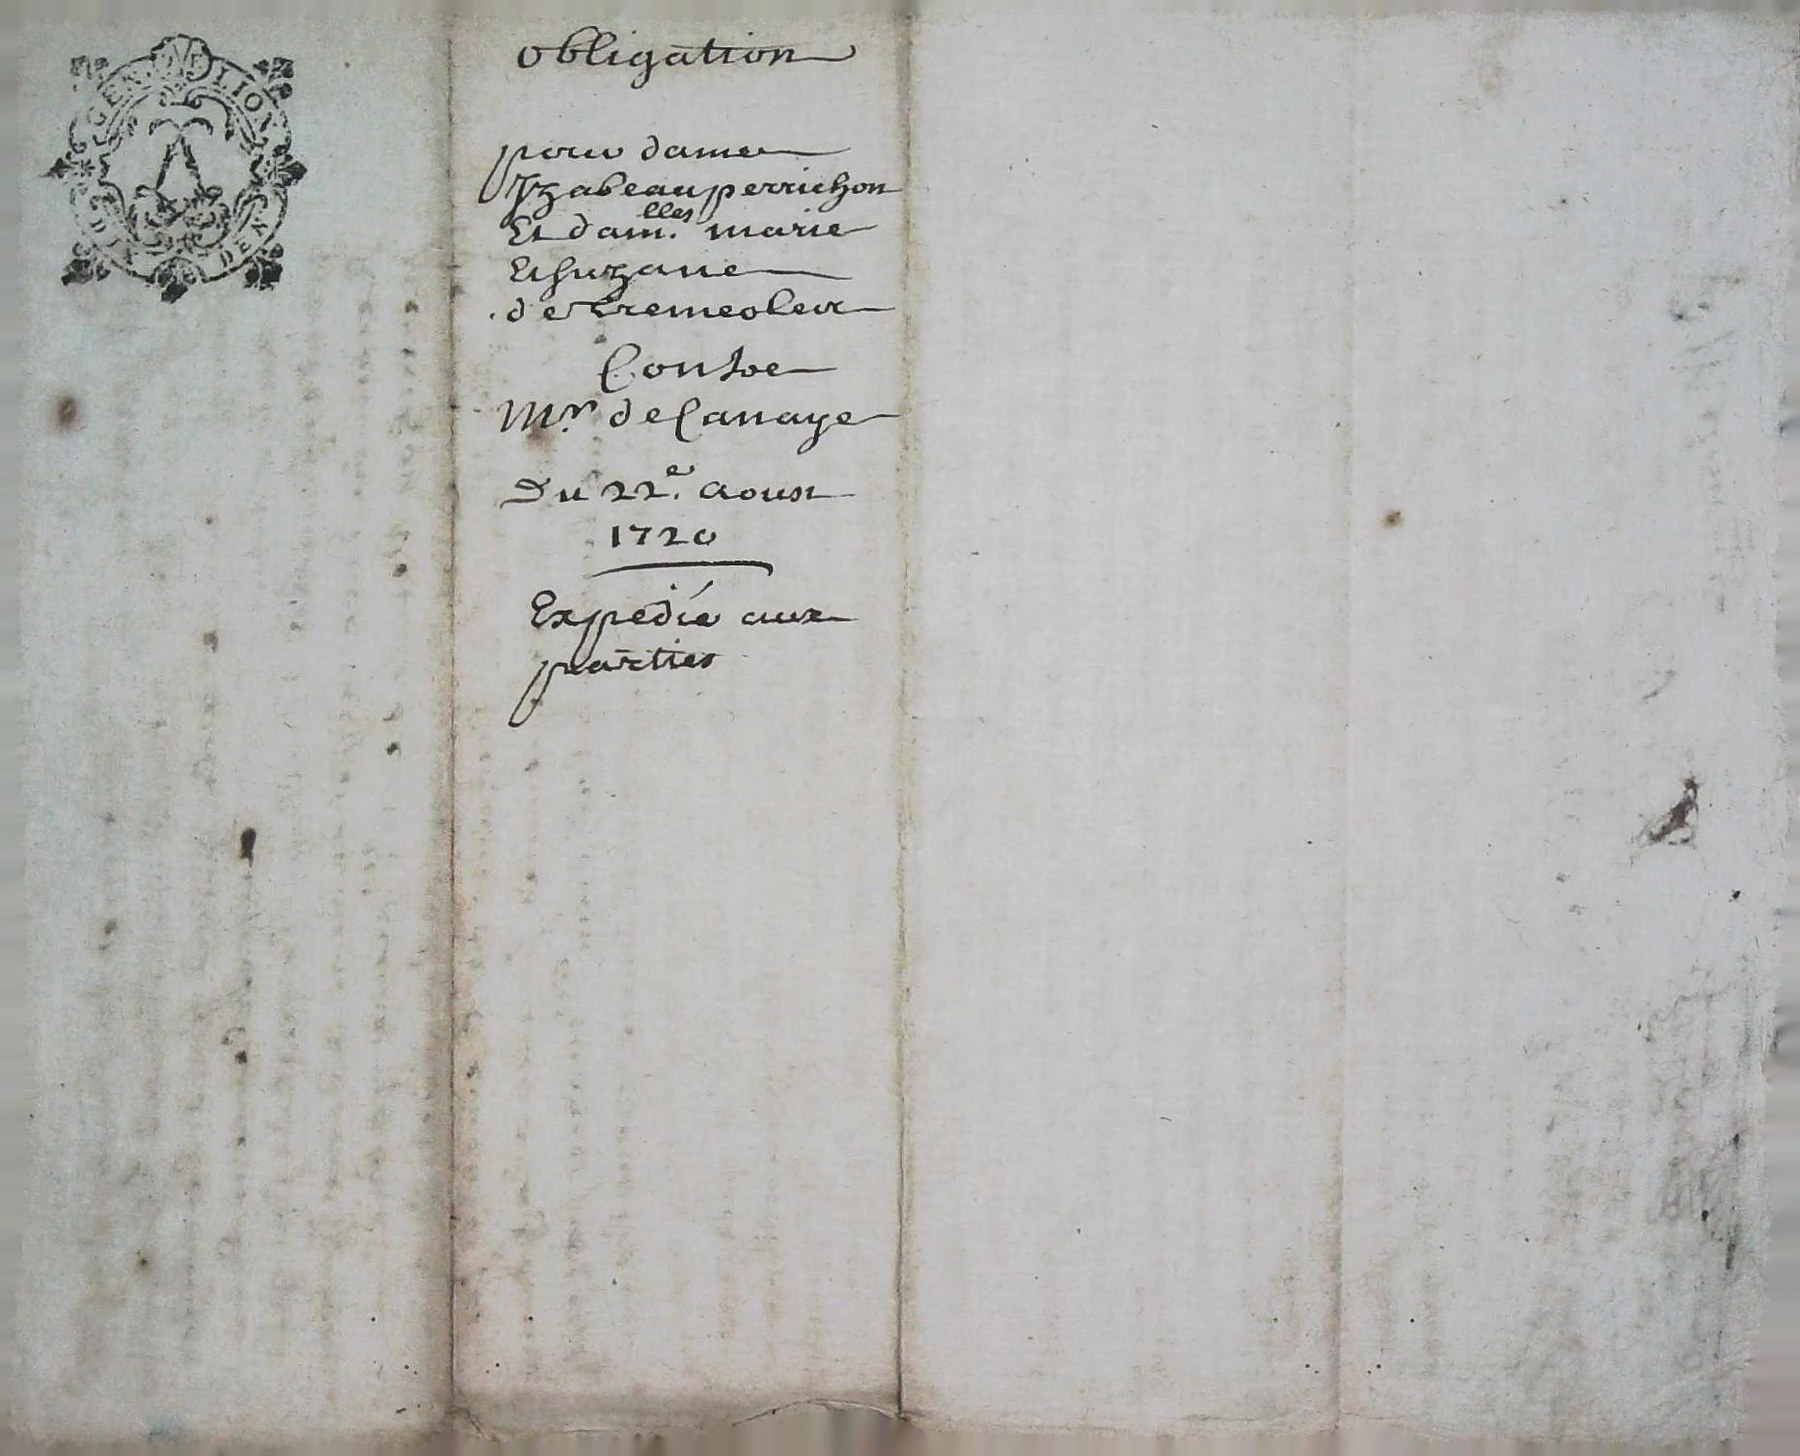 GEN. DE LION
DEN
obligation
pour dame
Yzabeau perrichon
Et dam.lles marie
Et suzane
de Tremeoler
Contre
Mr. de Canaye
Du 22e. aoust
1720
Expedié aux
parties